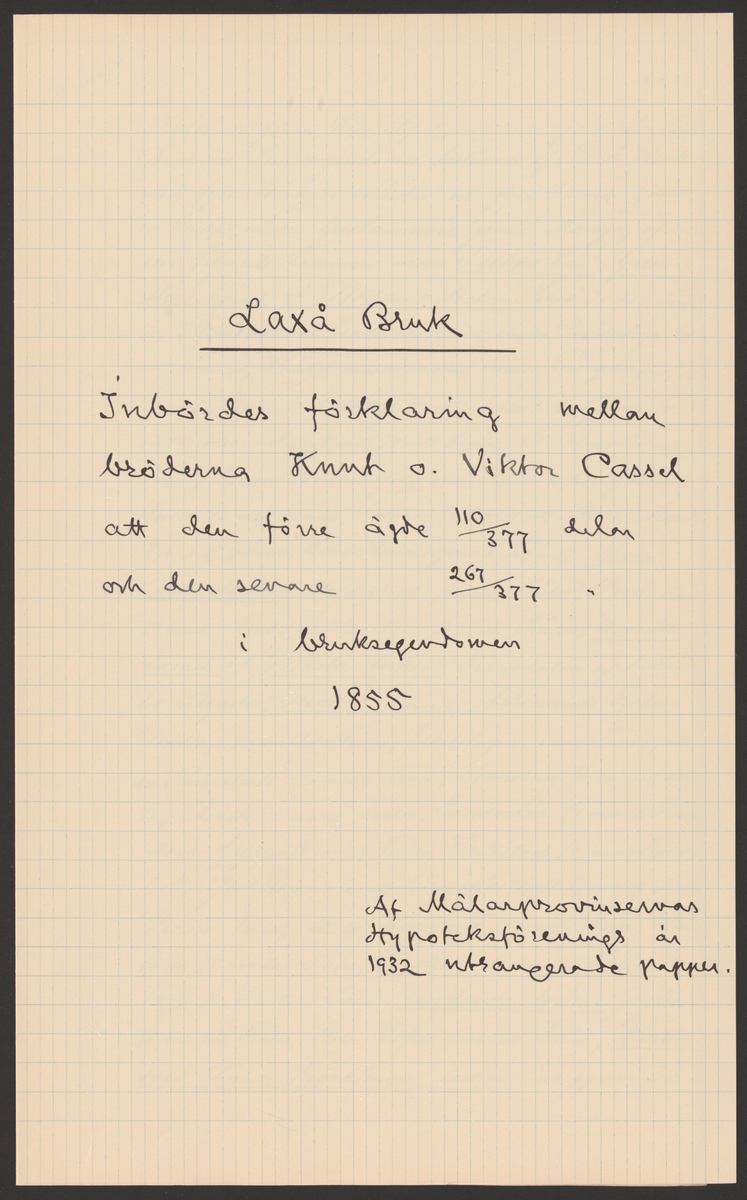 Laxå Bruk
Inbördes förklaring mellan
bröderna Knut o. Viktor Cassel
att den förre ägde 110/377 delar
och den senare 267/377 "
i bruksegendomen
1855
Af Mälarprovinsernas
Hypoteksförenings år
1932 utrangerade papper.